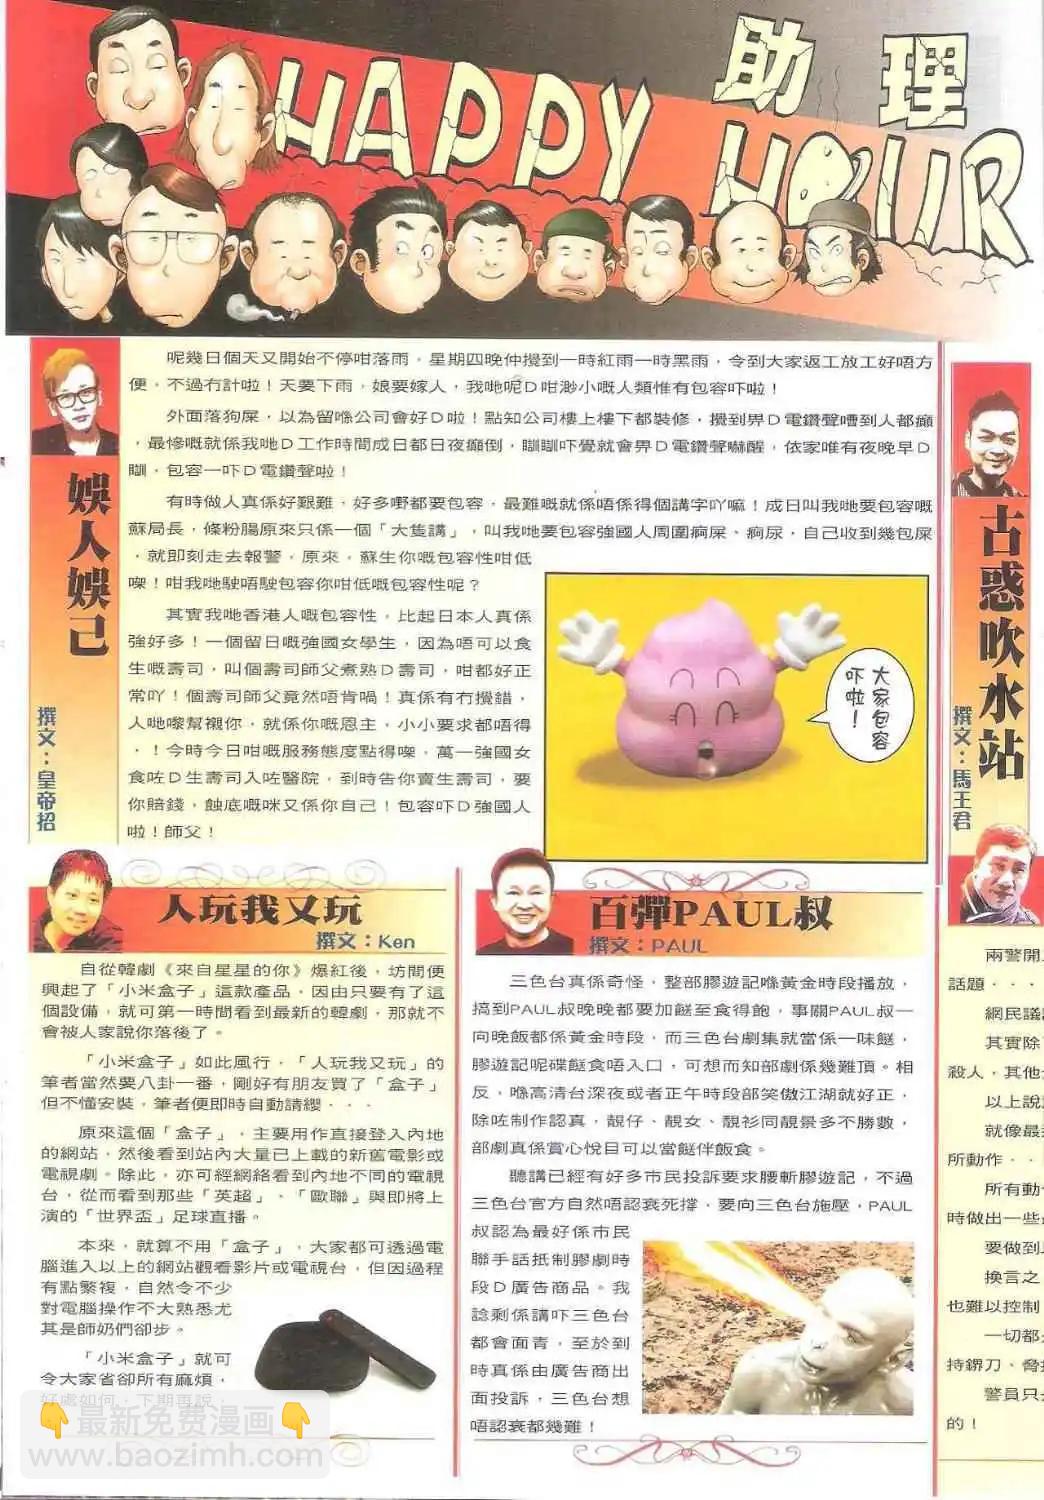 助理
HAPPY HOUR
娛人娛己
撰文：皇帝招
呢幾日個天又開始不停咁落雨，星期四晚仲攪到一時紅雨一時黑雨，令到大家返工放工好唔方
便，不過冇計啦！天要下雨，娘要嫁人，我哋呢D咁渺小嘅人類惟有包容吓啦！
外面落狗屎，以為留喺公司會好D啦！點知公司樓上樓下都裝修，攪到畀D電鑽聲嘈到人都癲
，最慘嘅就係我哋D工作時間成日都日夜癲倒，瞓瞓吓覺就會畀D電鑽聲嚇醒，依家唯有夜晚早D
瞓，包容一吓D電鑽聲啦！
有時做人真係好艱難，好多嘢都要包容，最難嘅就係唔係得個講字吖嘛！成日叫我哋要包容嘅
蘇局長，條粉腸原來只係一個「大隻講」，叫我哋要包容強國人周圍痾屎、痾尿，自己收到幾包屎
，就即刻走去報警，原來，蘇生你嘅包容性咁低
㗎！咁我哋駛唔駛包容你咁低嘅包容性呢？
其實我哋香港人嘅包容性，比起日本人真係
強好多！一個留日嘅強國女學生，因為唔可以食
生嘅壽司，叫個壽司師父煮熟D壽司，咁都好正
常吖！個壽司師父竟然唔肯喎！真係有冇攪錯，
人哋嚟幫襯你，就係你嘅恩主，小小要求都唔得
，！今時今日咁嘅服務態度點得㗎，萬一強國女
食咗D生壽司入咗醫院，到時告你賣生壽司，要
你賠錢，蝕底嘅咪又係你自己！包容吓D強國人
啦！師父！
大家包容
吓啦！
古惑吹水站
撰文：馬王君
人玩我又玩
撰文：Ken
自從韓劇《來自星星的你》爆紅後，坊間便
興起了「小米盒子」這款產品，因由只要有了這
個設備，就可第一時間看到最新的韓劇，那就不
會被人家說你落後了。
「小米盒子」如此風行，「人玩我又玩」的
筆者當然要八卦一番，剛好有朋友買了「盒子」
但不懂安裝，筆者便即時自動請纓．．．
原來這個「盒子」，主要用作直接登入內地
的網站，然後看到站內大量已上載的新舊電影或
電視劇。除此，亦可經網絡看到內地不同的電視
台，從而看到那些「英超」、「歐聯」與即將上
演的「世界盃」足球直播。
本來，就算不用「盒子」，大家都可透過電
腦進入以上的網站觀看影片或電視台，但因過程
有點繁複，自然令不少
對電腦操作不大熟悉尤
其是師奶們卻步。
「小米盒子」就可
令大家省卻所有麻煩，
好處如何，下期再說
百彈PAUL叔
撰文：PAUL
三色台真係奇怪，整部膠遊記喺黃金時段播放，
搞到PAUL叔晚晚都要加餸至食得飽，事關PAUL叔一
向晚飯都係黃金時段，而三色台劇集就當係一味餸，
膠遊記呢碟餸食唔入口，可想而知部劇係幾難頂。相
反，喺高清台深夜或者正午時段部笑傲江湖就好正，
除咗制作認真，靚仔、靚女、靚衫同靚景多不勝數，
部劇真係賞心悅目可以當餸伴飯食。
聽講已經有好多市民投訴要求腰斬膠遊記，不過
三色台官方自然唔認衰死撐，要向三色台施壓，PAUL
叔認為最好係市民
聯手話抵制膠劇時
段D廣告商品。我
諗剩係講吓三色台
都會面青，至於到
時真係由廣告商出
面投訴，三色台想
唔認衰都幾難！
兩警開
話題．．．
網民議
其實除
殺人，其他
以上說
就像最
所動作．．
所有動
時做出一些
要做到
換言之
也難以控制
一切都
持鎅刀、脅
警員只
的！
最新免费漫画
www.baozimh.com